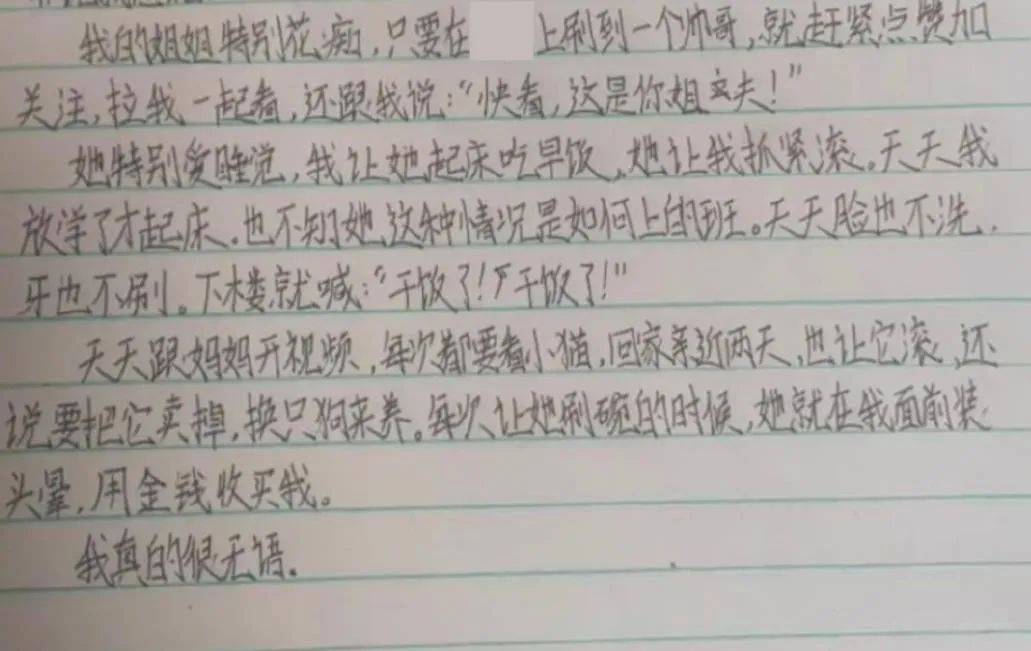 我的姐姐特别花痴,只要在 上刷到一个帅哥,就赶紧点赞加
关注,拉我一起看,还跟我说:“快看,这是你姐丈夫!”
她特别爱睡觉,我让她起床吃早饭,她让我抓紧滚。天天我
放学了才起床.也不知她这种情况是如何上的班。天天脸也不洗.
牙也不刷。下楼就喊:“干饭了!干饭了!”
天天跟妈妈开视频,每次都要看小猫,回家亲近两天,也让它滚,还
说要把它卖掉,换只狗来养。每次让她刷碗的时候,她就在我面前装
头晕,用金钱收买我。
我真的很无语.